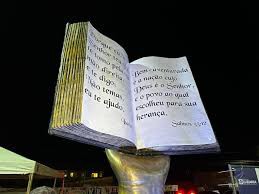 Porque eu,
Senhor teu
te tomo pela
mão direita
e te digo:
Não temas,
eu te ajudo.
Bem-aventurada
é a nação cujo
Deus é o Senhor,
e o povo ao qual
escolheu para sua
herança.
Salmos 33:12